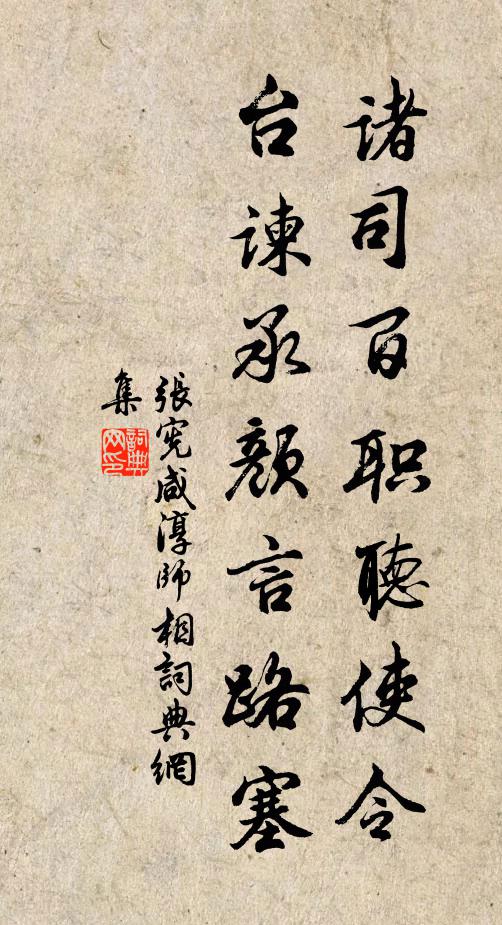 诸司百职聽使令
台谏承颜言路塞
張宪咸淳師相詞典網
集
詞典
网印